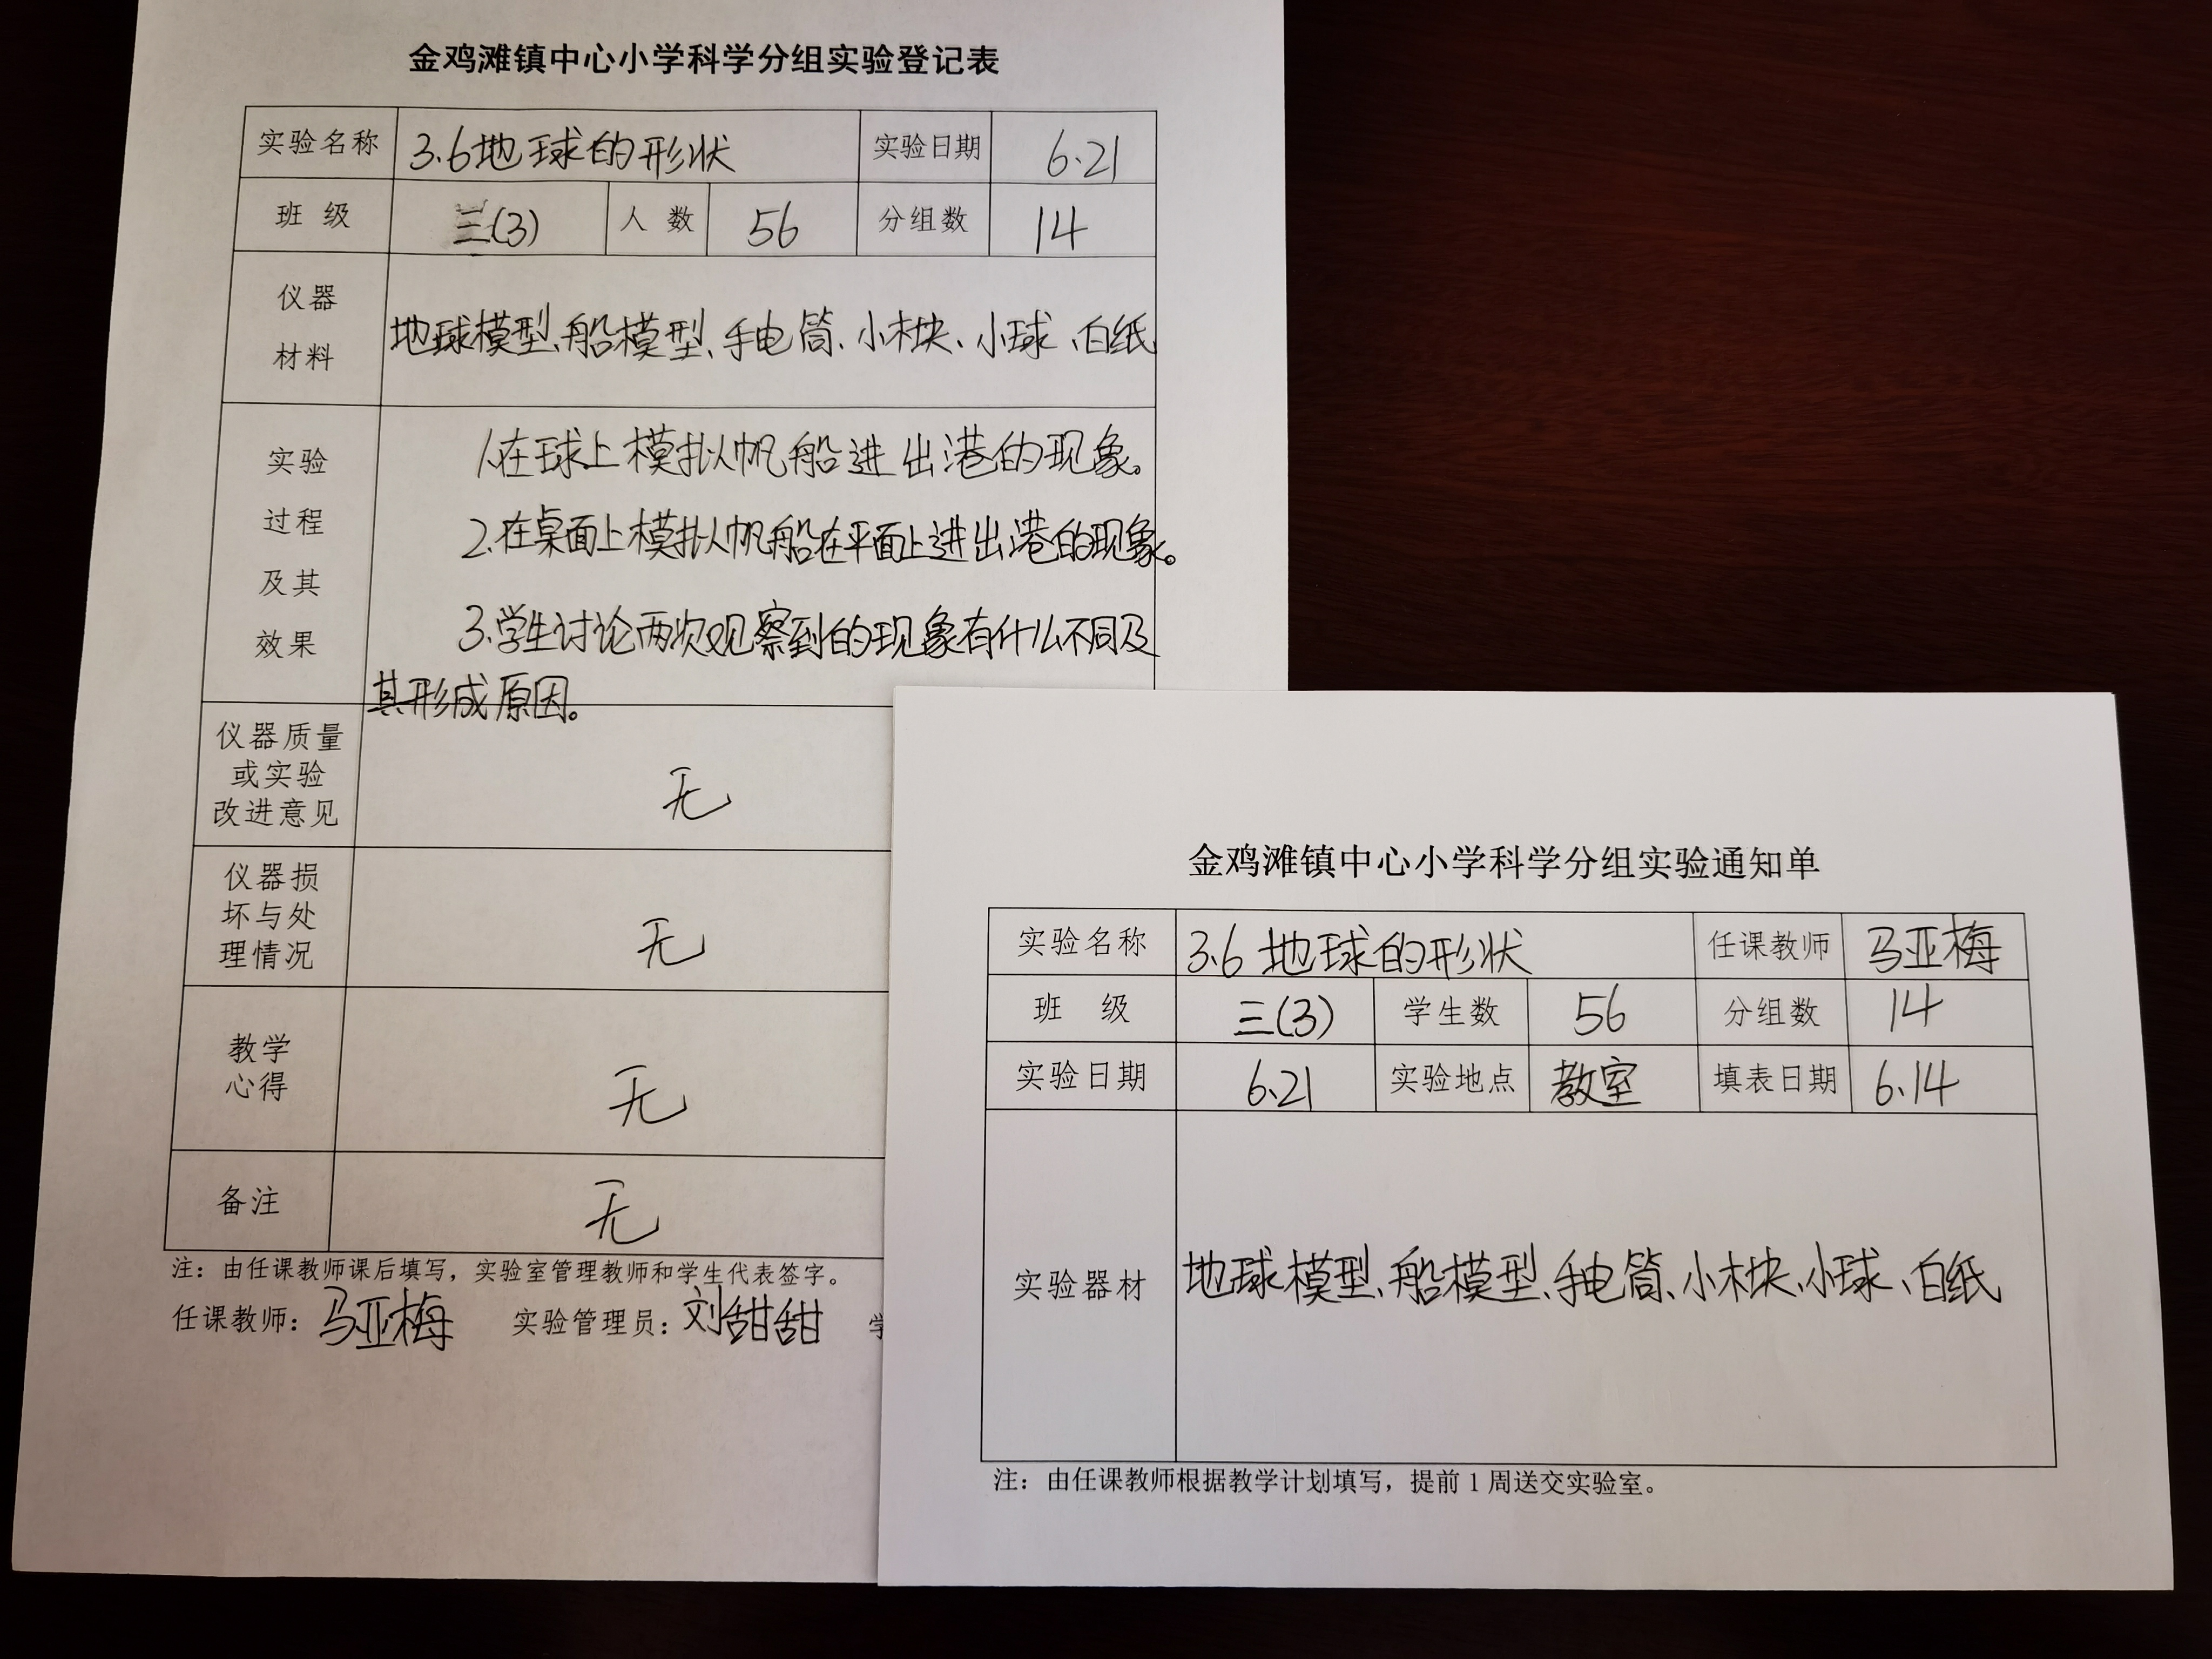 金鸡滩镇中心小学科学分组实验登记表
实验名称 3.6地球的形状 实验日期 6.21
班 级 三(3) 人 数 56 分组数 14
仪器
材料
地球模型、船模型、手电筒、小木块、小球、白纸
实验
过程
及其
效果
1.在球上模拟帆船进出港的现象。
2.在桌面上模拟帆船在平面上进出港的现象。
3.学生讨论两次观察到的现象有什么不同及
其形成原因。
仪器质量
或实验
改进意见
无
仪器损
坏与处
理情况
无
教学
心得
无
备注 无
注：由任课教师课后填写，实验室管理教师和学生代表签字。
任课教师：马亚梅 实验管理员：刘甜甜 学
金鸡滩镇中心小学科学分组实验通知单
实验名称 3.6 地球的形状 任课教师 马亚梅
班 级 三(3) 学生数 56 分组数 14
实验日期 6.21 实验地点 教室 填表日期 6.14
实验器材 地球模型、船模型、手电筒、小木块、小球、白纸
注：由任课教师根据教学计划填写，提前 1 周送交实验室。